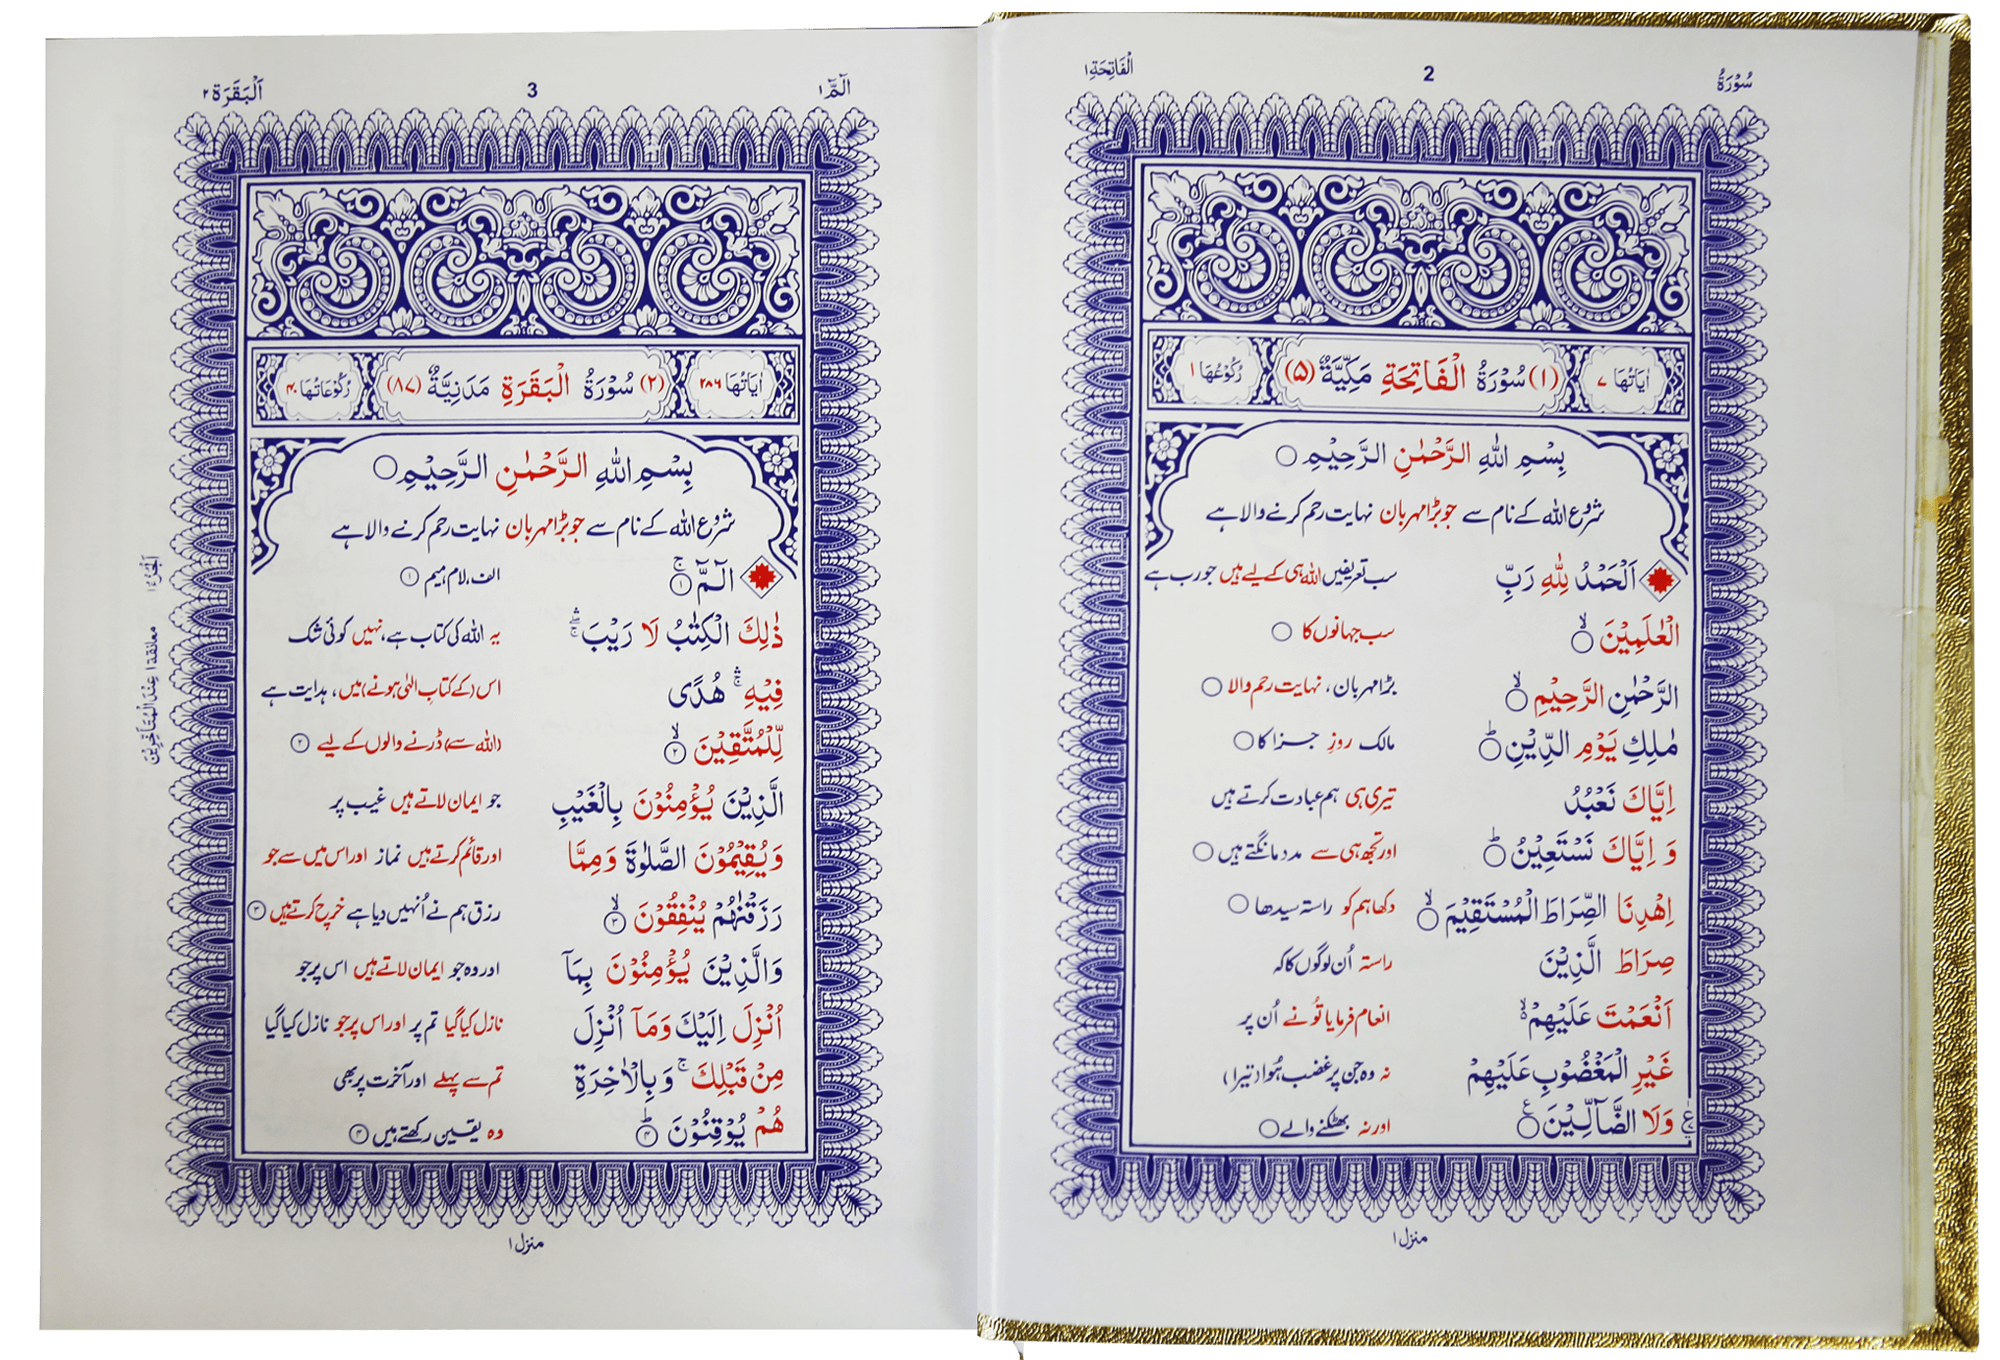 سُوْرَةُ 2 الْفَاتِحَة ١
اٰيَاتُهَا ٧ (١) سُوْرَةُ الْفَاتِحَةِ مَكِّيَّةٌ (٥) رُكُوْعُهَا ١
بِسْمِ اللهِ الرَّحْمٰنِ الرَّحِيْمِ ○
شروع اللہ کے نام سے جو بڑا مہربان نہایت رحم کرنے والا ہے
اَلْحَمْدُ لِلّٰهِ رَبِّ سب تعریفیں اللہ ہی کے لیے ہیں جو رب ہے
الْعٰلَمِيْنَ ○ۙ سب جہانوں کا ○
الرَّحْمٰنِ الرَّحِيْمِ ○ۙ بڑا مہربان، نہایت رحم والا ○
مٰلِكِ يَوْمِ الدِّيْنِ ○ؕ مالک روزِ جزا کا ○
اِيَّاكَ نَعْبُدُ تیری ہی ہم عبادت کرتے ہیں
وَ اِيَّاكَ نَسْتَعِيْنُ ○ؕ اور تجھ ہی سے مدد مانگتے ہیں ○
اِهْدِنَا الصِّرَاطَ الْمُسْتَقِيْمَ ○ۙ دکھا ہم کو راستہ سیدھا ○
صِرَاطَ الَّذِيْنَ راستہ اُن لوگوں کا کہ
اَنْعَمْتَ عَلَيْهِمْ ۙ انعام فرمایا تُو نے اُن پر
غَيْرِ الْمَغْضُوْبِ عَلَيْهِمْ نہ وہ جن پر غضب ہُوا (تیرا)
وَلَا الضَّآلِّيْنَ ○ اور نہ بھٹکنے والے ○
منزل ١
الٓمّٓ ١ 3 اَلْبَقَرَة ٢
اٰيَاتُهَا ٢٨٦ (٢) سُوْرَةُ الْبَقَرَةِ مَدَنِيَّةٌ (٨٧) رُكُوْعَاتُهَا ٤٠
بِسْمِ اللهِ الرَّحْمٰنِ الرَّحِيْمِ ○
شروع اللہ کے نام سے جو بڑا مہربان نہایت رحم کرنے والا ہے
الٓمّٓ ۚ ١ الف، لام، میم ١
ذٰلِكَ الْكِتٰبُ لَا رَيْبَ ۛۚ یہ اللہ کی کتاب ہے، نہیں کوئی شک
فِيْهِ ۛۚ هُدًى اس (کے کتابِ الٰہی ہونے) میں، ہدایت ہے
لِّلْمُتَّقِيْنَ ۙ ٢ (اللہ سے) ڈرنے والوں کے لیے ٢
الَّذِيْنَ يُؤْمِنُوْنَ بِالْغَيْبِ جو ایمان لاتے ہیں غیب پر
وَيُقِيْمُوْنَ الصَّلٰوةَ وَمِمَّا اور قائم کرتے ہیں نماز اور اس میں سے جو
رَزَقْنٰهُمْ يُنْفِقُوْنَ ۙ ٣ رزق ہم نے اُنہیں دیا ہے خرچ کرتے ہیں ٣
وَالَّذِيْنَ يُؤْمِنُوْنَ بِمَآ اور وہ جو ایمان لاتے ہیں اس پر جو
اُنْزِلَ اِلَيْكَ وَمَآ اُنْزِلَ نازل کیا گیا تم پر اور اس پر جو نازل کیا گیا
مِنْ قَبْلِكَ ۚ وَبِالْاٰخِرَةِ تم سے پہلے اور آخرت پر بھی
هُمْ يُوْقِنُوْنَ ؕ ٤ وہ یقین رکھتے ہیں ٤
منزل ١
معانقة ١ عِنْدَ الْمُتَأَخِّرِيْنَ